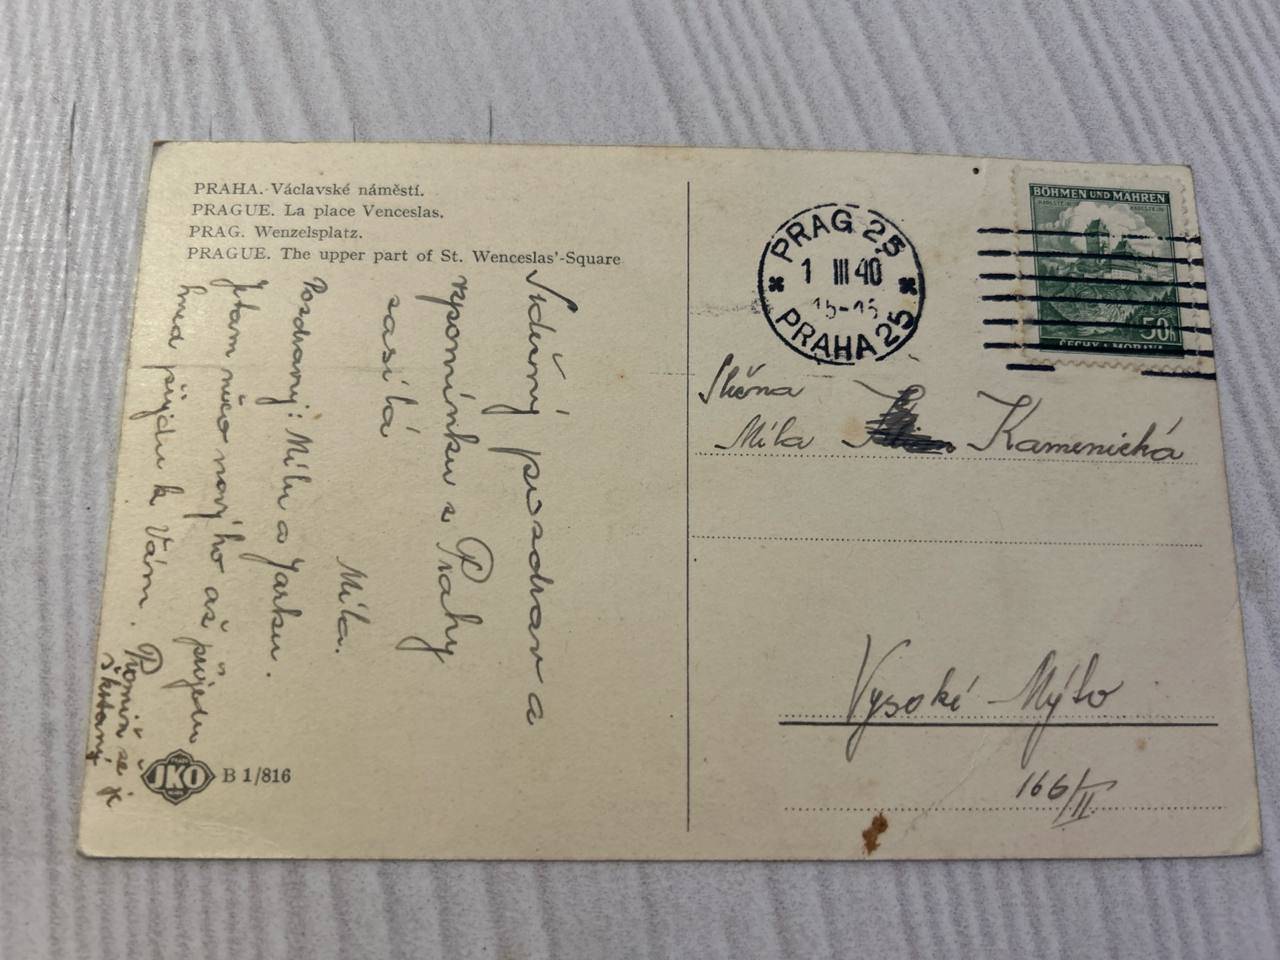 PRAHA. Václavské náměstí.
PRAGUE. La place Venceslas.
PRAG. Wenzelsplatz.
PRAGUE. The upper part of St. Wenceslas'-Square
Srdečný pozdrav a
vzpomínku z Prahy
zasílá
Míla.
Pozdravuj: Mílu a Jarku.
něco novýho až přijedu
hned přijdu k Vám.
JKO
B 1/816
PRAG 25
1 III 40
PRAHA 25
BÖHMEN UND MÄHREN
50h
ČECHY A MORAVA
Slečna
Míla Kamenická
Vysoké Mýto
166/II